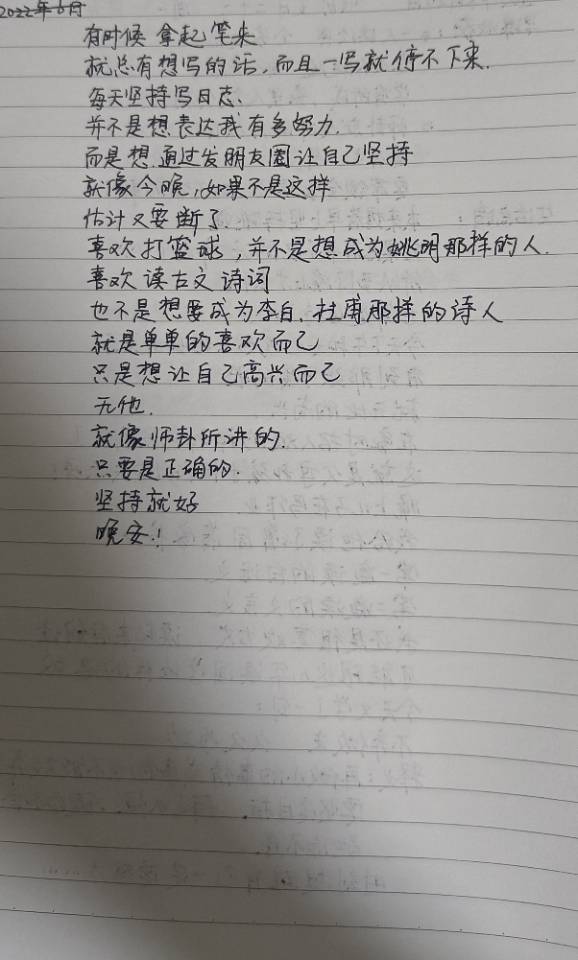 2022年6月
有时候 拿起笔来
就总有想写的话,而且一写就停不下来.
每天坚持写日志.
并不是想表达我有多努力.
而是想 通过发朋友圈让自己坚持
就像今晚,如果不是这样
估计又要断了.
喜欢打篮球,并不是想成为姚明那样的人.
喜欢读古文诗词
也不是想要成为李白.杜甫那样的诗人
就是单单的喜欢而已
只是想让自己高兴而已
无他.
就像师卦所讲的.
只要是正确的.
坚持就好
晚安!